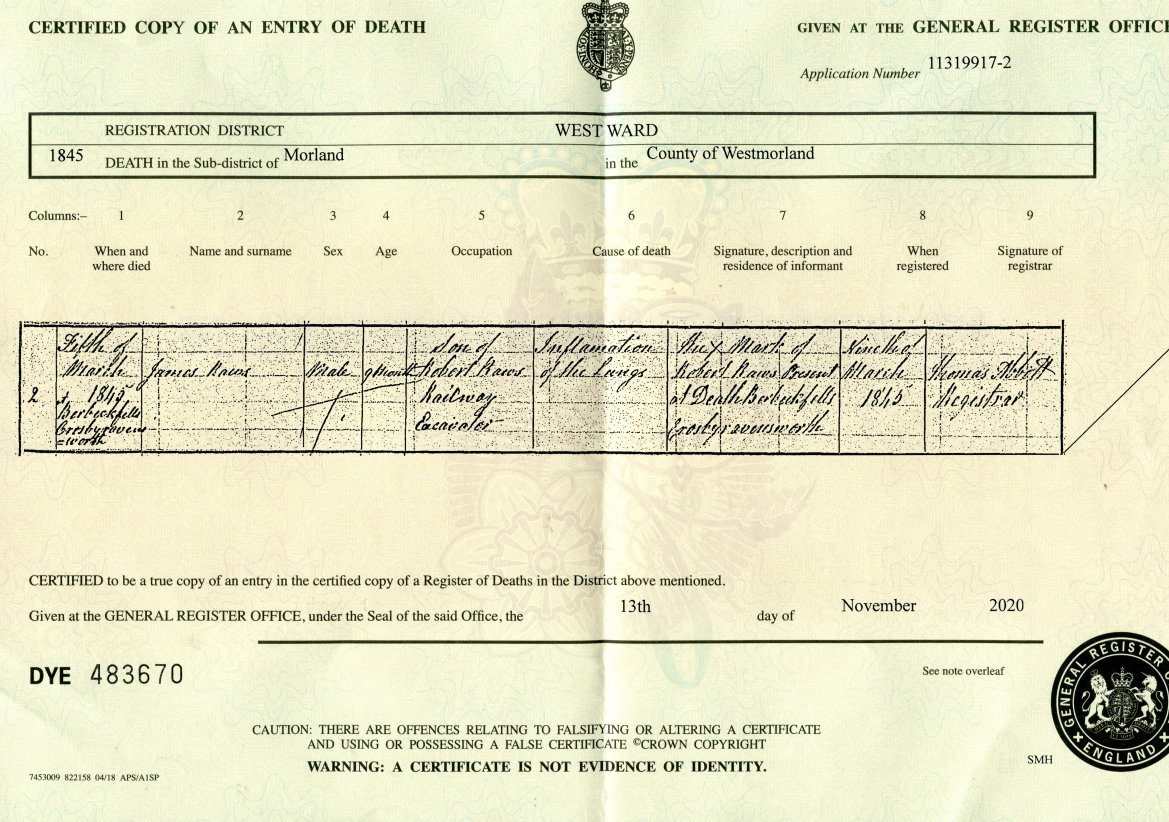 CERTIFIED COPY OF AN ENTRY OF DEATH
GIVEN AT THE GENERAL REGISTER OFFICE
Application Number 11319917-2
REGISTRATION DISTRICT WEST WARD
1845 DEATH in the Sub-district of Morland in the County of Westmorland
Columns:– 1 2 3 4 5 6 7 8 9
No. When and where died Name and surname Sex Age Occupation Cause of death Signature, description and residence of informant When registered Signature of registrar
2
Fifth of
March
1845
Borbeckfells
Crosbyravens
=worth
James Raws
Male
9 Months
Son of
Robert Raws
Railway
Excavator
Inflamation
of the Lungs
The X Mark of
Robert Raws Present
at Death Borbeckfells
Crosbyravensworth
Ninth of
March
1845
Thomas Abbott
Registrar
CERTIFIED to be a true copy of an entry in the certified copy of a Register of Deaths in the District above mentioned.
Given at the GENERAL REGISTER OFFICE, under the Seal of the said Office, the 13th day of November 2020
DYE 483670
See note overleaf
CAUTION: THERE ARE OFFENCES RELATING TO FALSIFYING OR ALTERING A CERTIFICATE
AND USING OR POSSESSING A FALSE CERTIFICATE ©CROWN COPYRIGHT
WARNING: A CERTIFICATE IS NOT EVIDENCE OF IDENTITY.
7453009 822158 04/18 APS/A1SP
SMH
GENERAL REGISTER O
ENGLAND